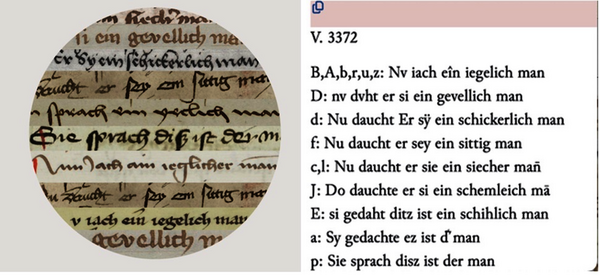 si ein gevellich
er Sy ein schickerlich man
er sey ein sittig
sprach ein
Sie sprach disz ist der
Jach ain ieglicher man
er sey ein sittig
v iach eîn iegelich man
gevellich
V. 3372
B,A,b,r,u,z: Nv iach eîn iegelich man
D: nv dvht er si ein gevellich man
d: Nu daucht Er sÿ ein schickerlich man
f: Nu daucht er sey ein sittig man
c,l: Nu daucht er sie ein siecher man̄
J: Do dauchte er si ein schemleich mā
E: si gedaht ditz ist ein schihlich man
a: Sy gedachte ez ist d͛ man
p: Sie sprach disz ist der man